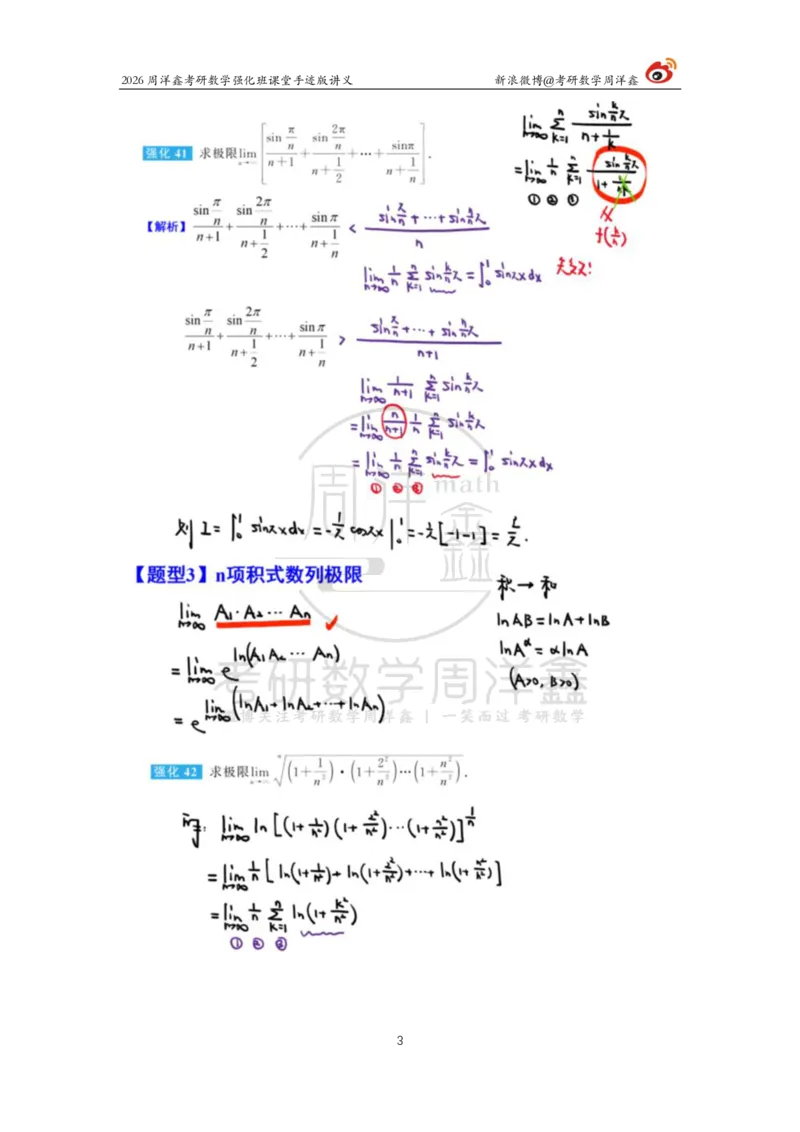 2026 周洋鑫考研数学强化班课堂手迹版讲义 新浪微博@考研数学周洋鑫
强化 41 求极限 lim_{n→∞} [ sin(π/n)/(n+1) + sin(2π/n)/(n+1/2) + ⋯ + sinπ/(n+1/n) ] .
lim_{n→∞} Σ_{k=1}^{n} sin(k/n)π / (n+1/k)
= lim_{n→∞} 1/n Σ_{k=1}^{n} sin(k/n)π / (1+1/(nk))
① ② ③
× f(k/n)
【解析】 sin(π/n)/(n+1) + sin(2π/n)/(n+1/2) + ⋯ + sinπ/(n+1/n) < (sin(π/n) + ⋯ + sin(n/n)π) / n
lim_{n→∞} 1/n Σ_{k=1}^{n} sin(k/n)π = ∫_0^1 sinπx dx
sin(π/n)/(n+1) + sin(2π/n)/(n+1/2) + ⋯ + sinπ/(n+1/n) > (sin(π/n) + ⋯ + sin(n/n)π) / (n+1)
lim_{n→∞} 1/(n+1) Σ_{k=1}^{n} sin(k/n)π
= lim_{n→∞} n/(n+1) 1/n Σ_{k=1}^{n} sin(k/n)π
= lim_{n→∞} 1/n Σ_{k=1}^{n} sin(k/n)π = ∫_0^1 sinπx dx
① ② ③
周洋鑫 math
则 I = ∫_0^1 sinπx dx = -1/π cosπx |_0^1 = -1/π [-1-1] = 2/π .
【题型3】n项积式数列极限
积→和
lim_{n→∞} A₁·A₂⋯Aₙ ✓
ln AB = ln A + ln B
= lim_{n→∞} e^{ln(A₁A₂⋯Aₙ)}
ln A^α = α ln A
(A>0, B>0)
= e^{lim_{n→∞} (ln A₁ + ln A₂ + ⋯ + ln Aₙ)}
考研数学周洋鑫
博关注考研数学周洋鑫 | 一笑而过 考研数学
强化 42 求极限 lim_{n→∞} ⁿ√( (1+1/n²)·(1+2²/n²)⋯(1+n²/n²) ) .
lim_{n→∞} ln [(1+1/n²)(1+2²/n²)⋯(1+n²/n²)]^{1/n}
= lim_{n→∞} 1/n [ ln(1+1/n²) + ln(1+2²/n²) + ⋯ + ln(1+n²/n²) ]
= lim_{n→∞} 1/n Σ_{k=1}^{n} ln(1+k²/n²)
① ② ③
3